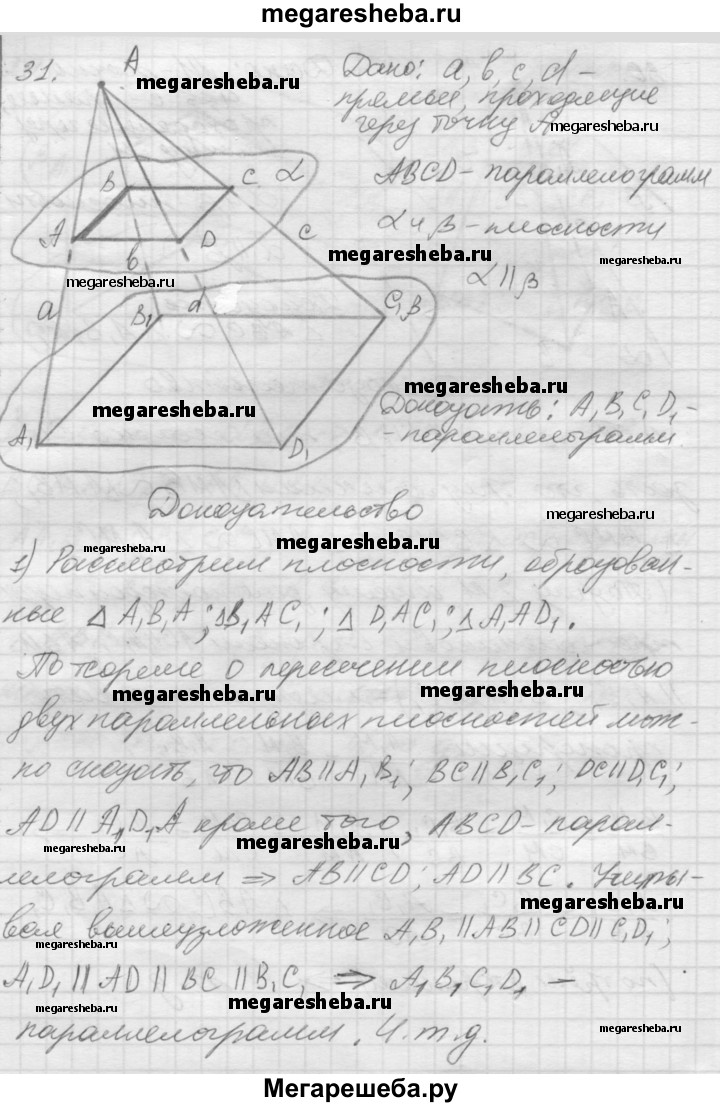 megaresheba.ru
31.
A
megaresheba.ru
Дано: a, b, c, d -
прямые, проходящие
через точку A
megaresheba.ru
ABCD - параллелограмм
α и β - плоскости
α || β
B
C
α
A
D
b
c
megaresheba.ru
megaresheba.ru
megaresheba.ru
a
B₁
d
C₁
β
megaresheba.ru
megaresheba.ru
Доказать: A₁B₁C₁D₁ -
- параллелограмм.
A₁
D₁
Доказательство
megaresheba.ru
megaresheba.ru
megaresheba.ru
1) Рассмотрим плоскости, образован-
ные Δ A₁B₁A; ΔB₁AC₁; Δ D₁AC₁; Δ A₁AD₁.
По теореме о пересечении плоскостью
megaresheba.ru
megaresheba.ru
двух параллельных плоскостей мож-
но сказать, что AB||A₁B₁; BC||B₁C₁; DC||D₁C₁;
AD || A₁D₁A кроме того, ABCD - парал-
megaresheba.ru
megaresheba.ru
лелограмм ⇒ AB||CD; AD||BC. Учиты-
вая вышеизложенное A₁B₁||AB||CD||C₁D₁;
megaresheba.ru
A₁D₁ || AD || BC || B₁C₁ ⇒ A₁B₁C₁D₁ -
megaresheba.ru
megaresheba.ru
параллелограмм. Ч.т.д.
megaresheba.ru
Мегарешеба.ру